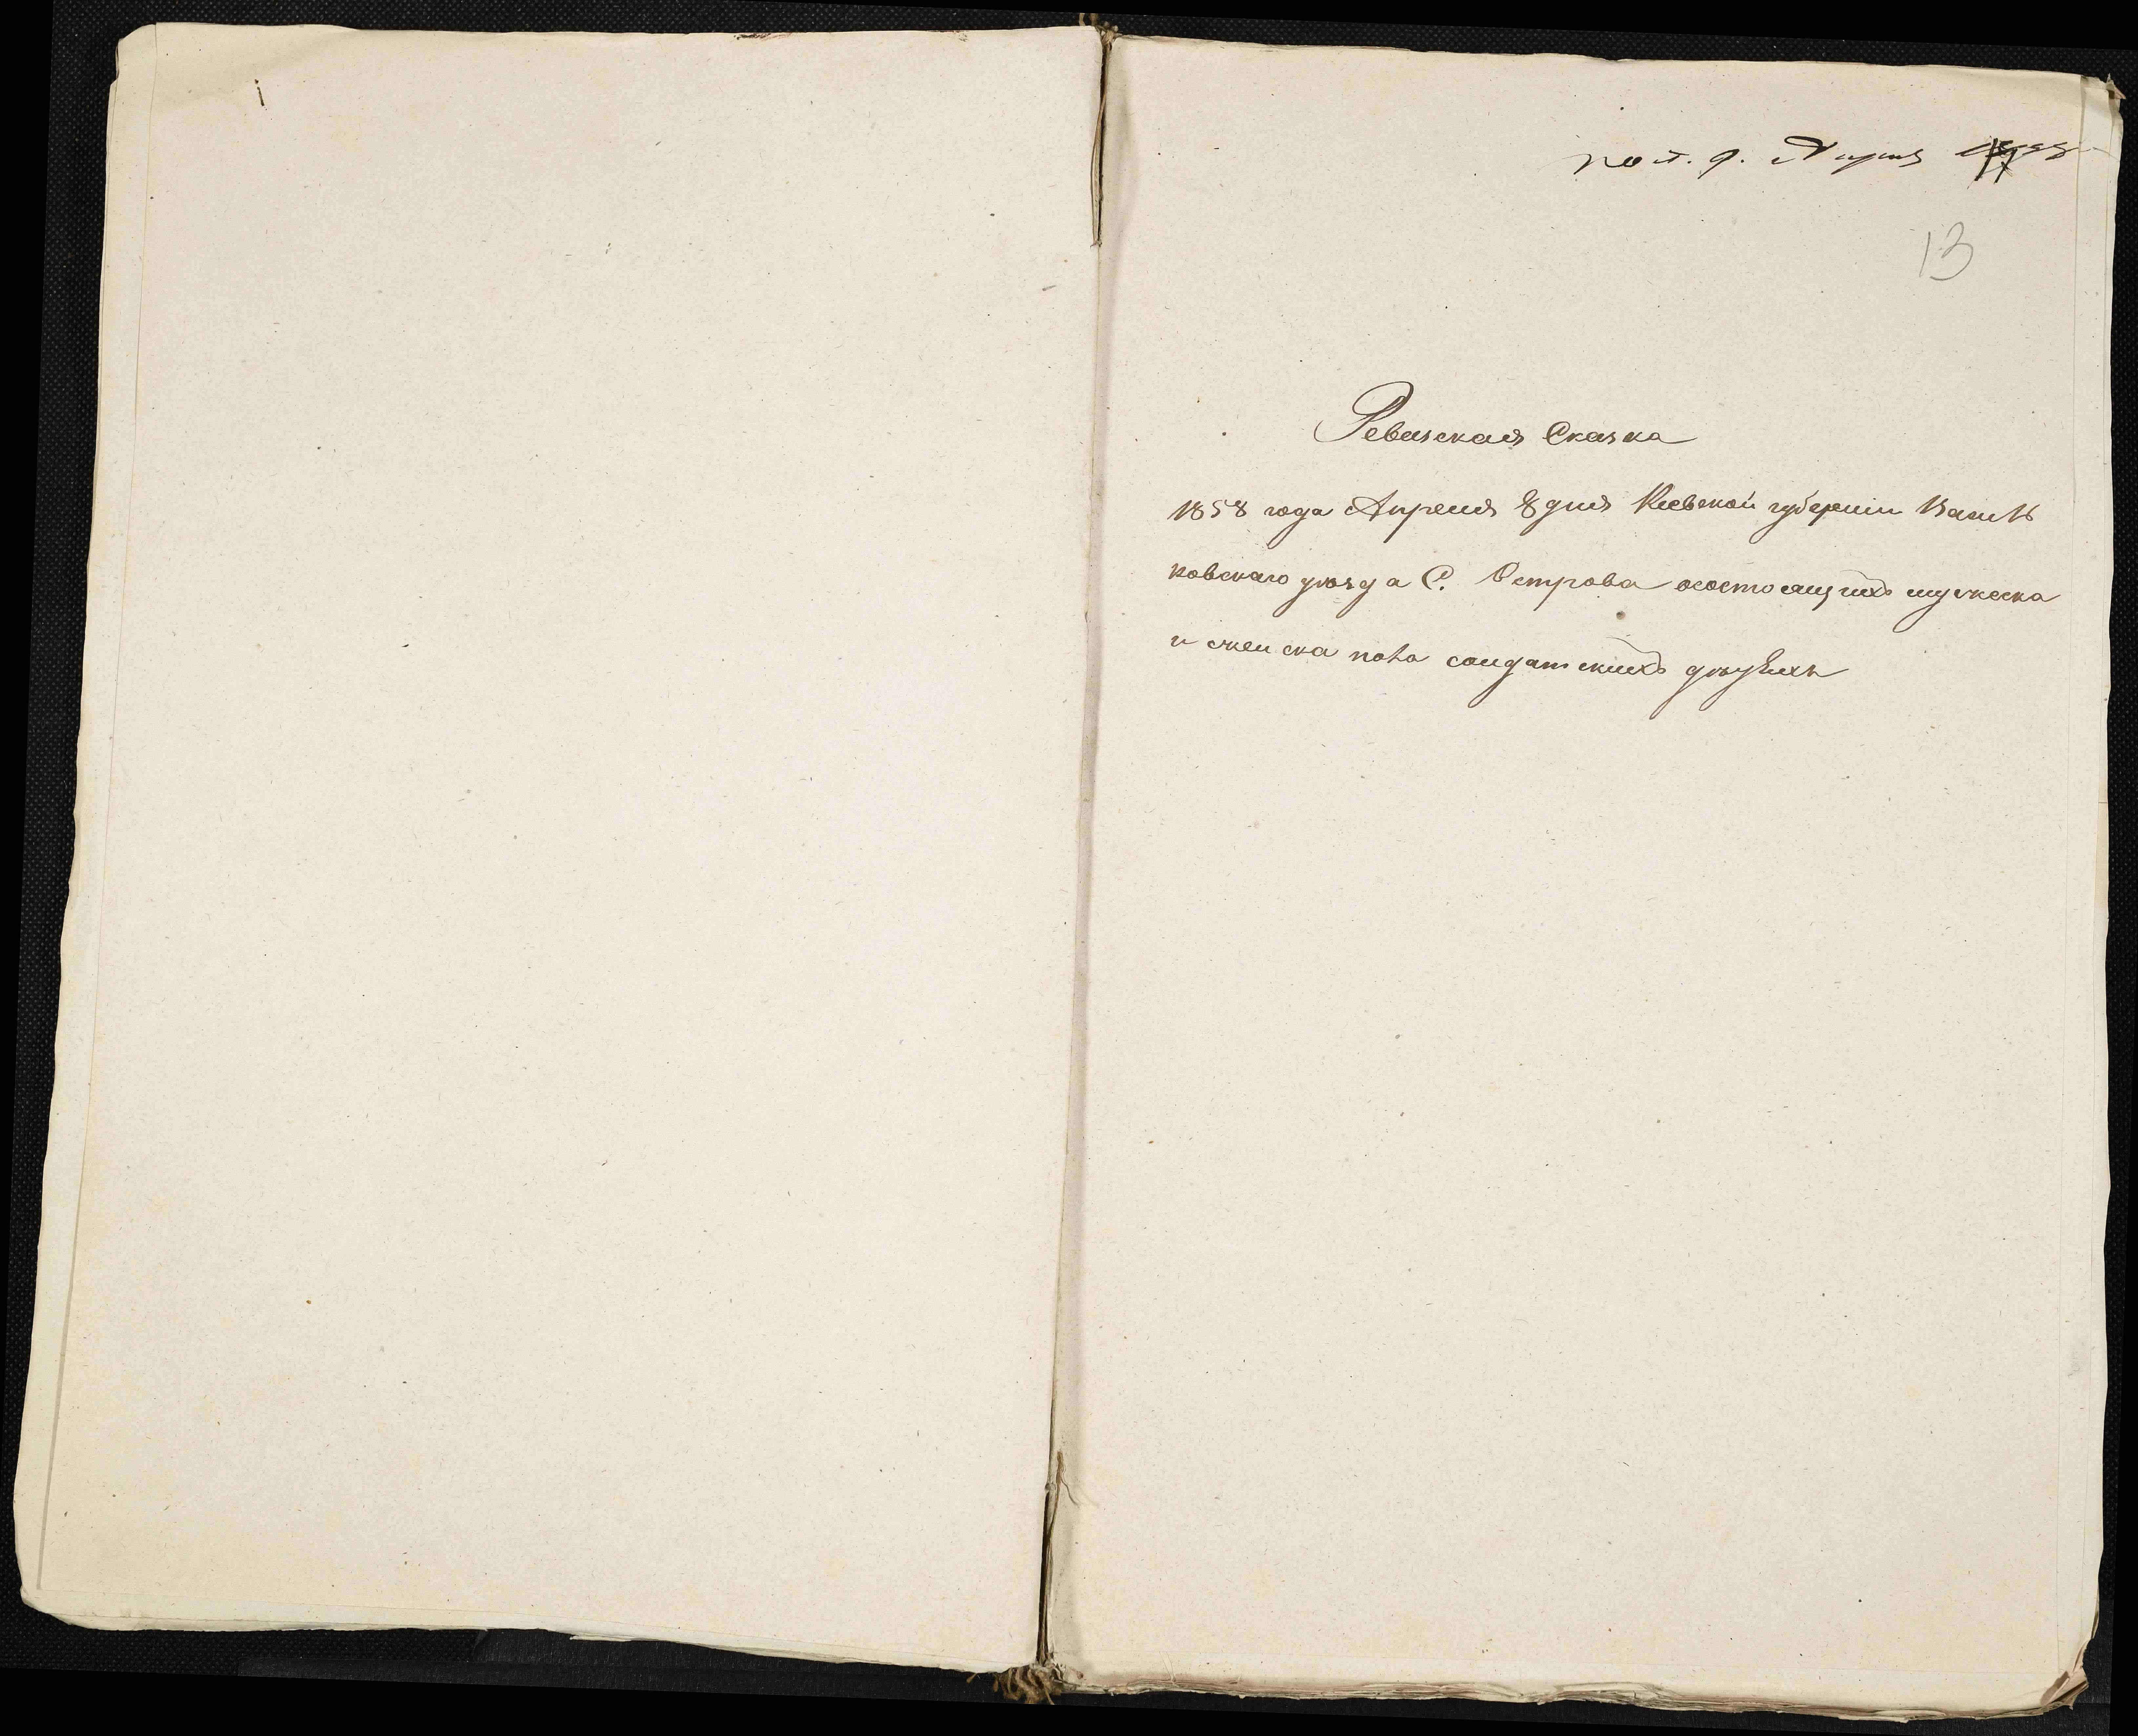 пол. 9. Апреля
13
Ревизская Сказка
1858 года Апреля 8 дня Киевской губернiи Василь
ковскаго уезда С. Острова осостоящихъ мужеска
и женска пола солдатскихъ